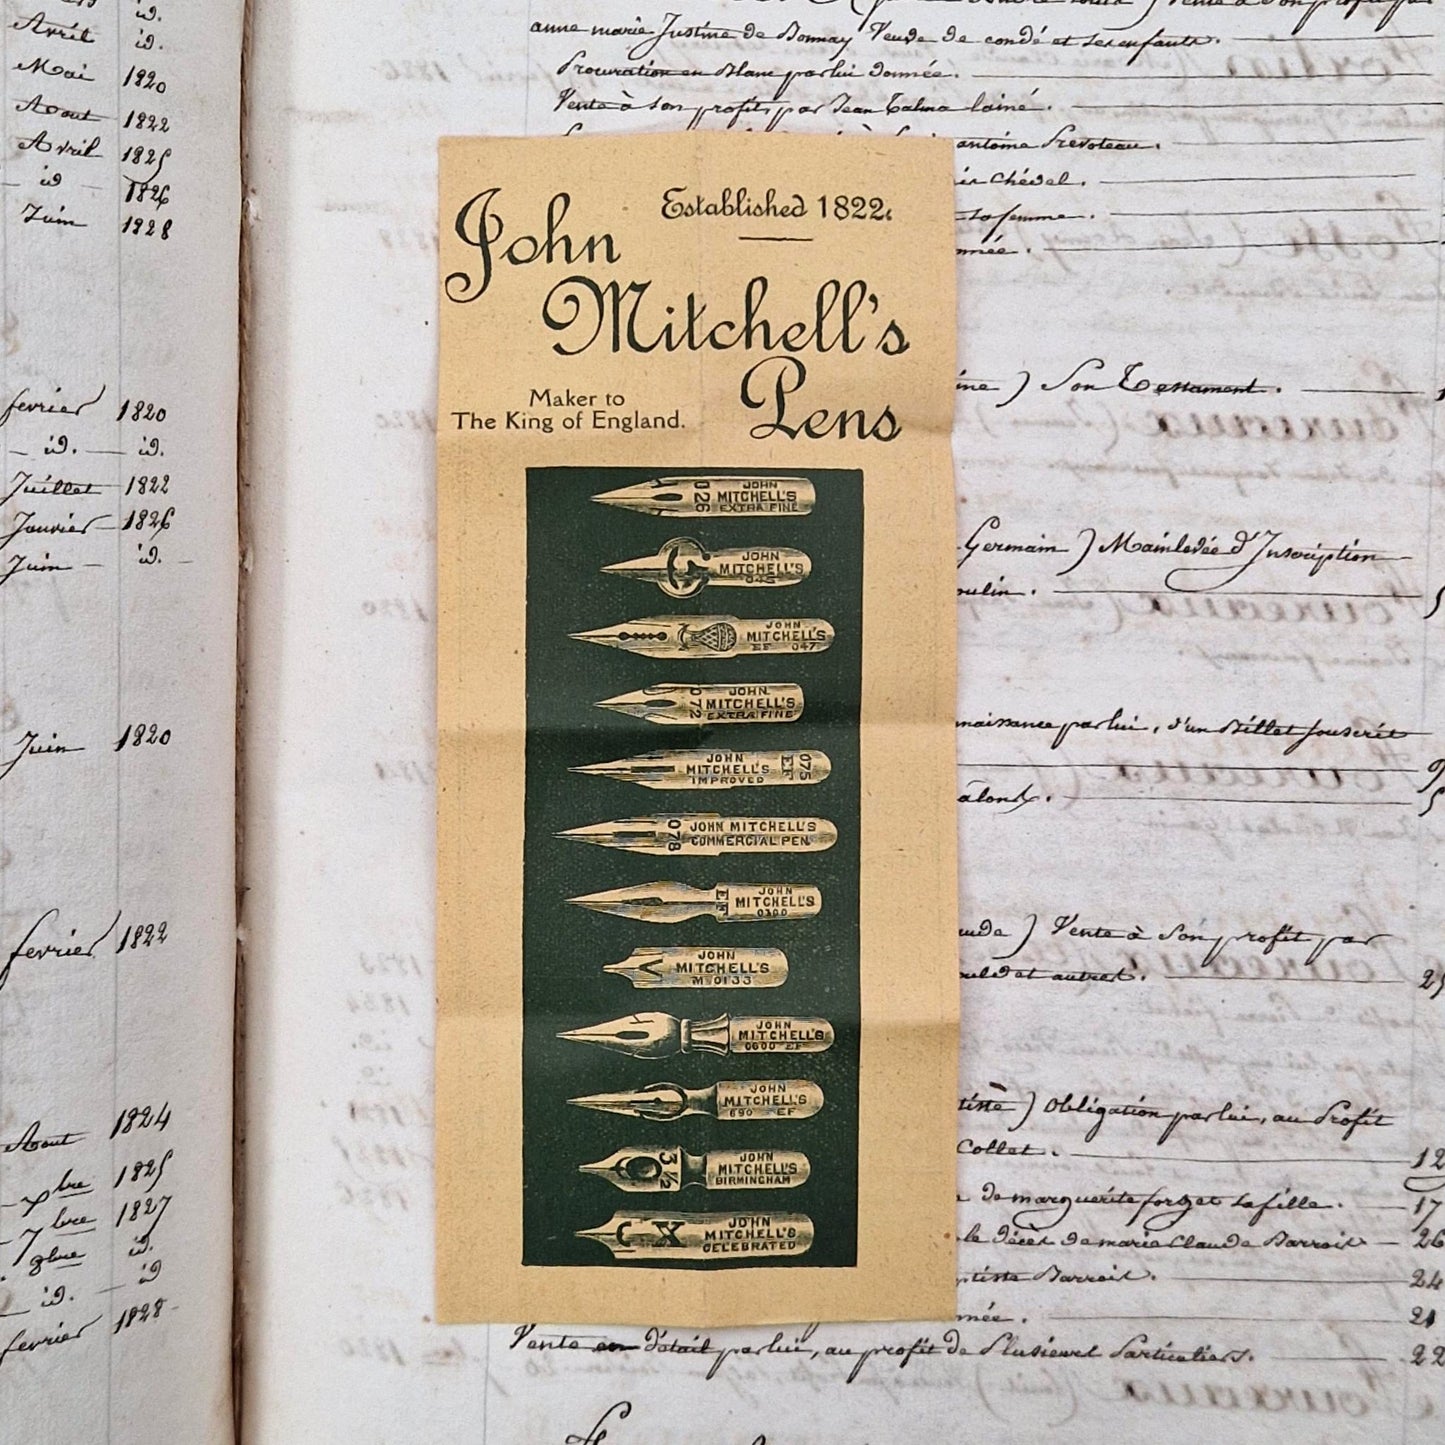 Avril id.
Mai 1820
Aout 1822
Avril 1825
id 1826
Juin 1828
fevrier 1820
id. id.
Juillet 1822
Janvier 1826
Juin id.
Juin 1820
fevrier 1822
Aout 1824
xbre 1825
7bre 1827
id.
id. id
fevrier 1828
anne marie Justine de Bonnay Veuve de condé et ses enfants.
Procuration en Blanc par lui donnée.
Vente à son profit, par Jean Talma lainé.
antoine Prevoteau.
Chével.
sa femme.
née.
John
Mitchell's
Pens
Established 1822.
Maker to
The King of England.
026 JOHN
MITCHELL'S
EXTRA FINE
JOHN
MITCHELL'S
045
JOHN
MITCHELL'S
EF 047
072 JOHN
MITCHELL'S
EXTRA FINE
JOHN
MITCHELL'S
IMPROVED
EF 075
078 JOHN MITCHELL'S
COMMERCIAL PEN
EF JOHN
MITCHELL'S
0300
JOHN
MITCHELL'S
M 0133
JOHN
MITCHELL'S
0600 EF
JOHN
MITCHELL'S
690 EF
3½ JOHN
MITCHELL'S
BIRMINGHAM
JOHN
MITCHELL'S
CELEBRATED
) Son Testament.
Germain ) Mainlevée d'Inscription
oulin.
naissance par lui, d'un Billet souscrit
) Vente à Son profit par
et autres. 25
) Obligation par lui, au Profit
Collet. 12
de marguerite forget sa fille. 17
le décès de marie Claude Barroit 26
Barroit. 24
née. 21
Vente en détail par lui, au profit de Plusieurs Particuliers. 22